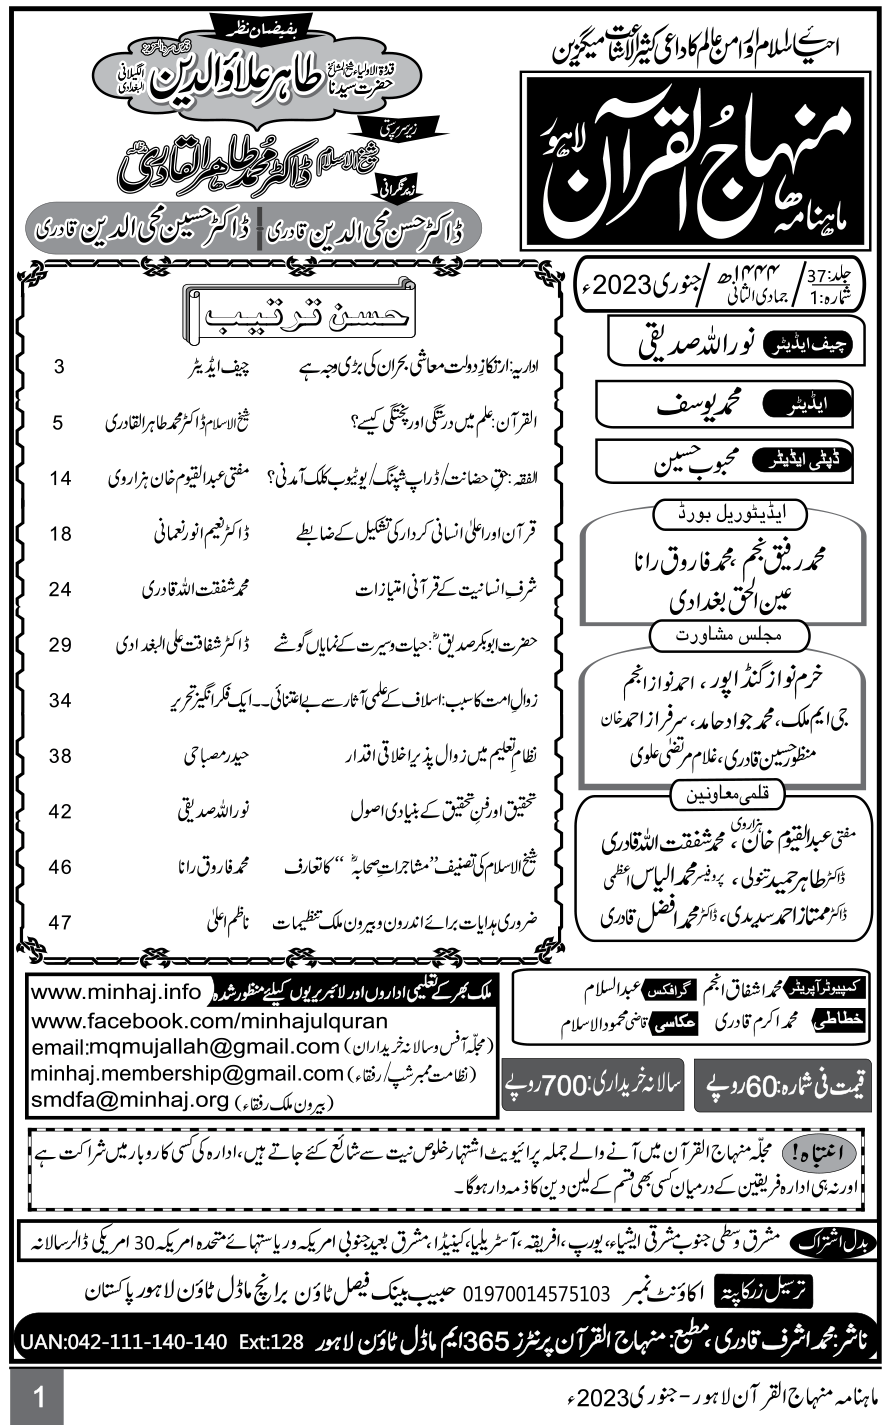 احیائے اسلام اور امن عالم کا داعی کثیر الاشاعت میگزین
ماہنامہ منہاج القرآن لاہور
بفیضان نظر
قدوۃ الاولیاء شیخ المشائخ حضرت سیدنا طاہر علاؤالدین الگیلانی البغدادی
زیر سرپرستی
شیخ الاسلام ڈاکٹر محمد طاہر القادری
زیر نگرانی
ڈاکٹر حسن محی الدین قادری | ڈاکٹر حسین محی الدین قادری
جلد:37 شمارہ:1 / جمادی الثانی ۱۴۴۴ھ / جنوری 2023ء
چیف ایڈیٹر نور اللہ صدیقی
ایڈیٹر محمد یوسف
ڈپٹی ایڈیٹر محبوب حسین
ایڈیٹوریل بورڈ
محمد رفیق نجم، محمد فاروق رانا
عین الحق بغدادی
مجلس مشاورت
خرم نواز گنڈاپور، احمد نواز انجم
جی ایم ملک، محمد جواد حامد، سرفراز احمد خان
منظور حسین قادری، غلام مرتضیٰ علوی
قلمی معاونین
مفتی عبدالقیوم خان ہزاروی، محمد شفقت اللہ قادری
ڈاکٹر طاہر حمید تنولی، پروفیسر محمد الیاس اعظمی
ڈاکٹر ممتاز احمد سدیدی، ڈاکٹر محمد افضل قادری
حسن ترتیب
اداریہ: ارتکازِ دولت معاشی بحران کی بڑی وجہ ہے چیف ایڈیٹر 3
القرآن: علم میں درستگی اور پختگی کیسے؟ شیخ الاسلام ڈاکٹر محمد طاہر القادری 5
الفقہ: حقِ حضانت/ڈراپ شپنگ/یوٹیوب کلک آمدنی؟ مفتی عبدالقیوم خان ہزاروی 14
قرآن اور اعلیٰ انسانی کردار کی تشکیل کے ضابطے ڈاکٹر نعیم انور نعمانی 18
شرفِ انسانیت کے قرآنی امتیازات محمد شفقت اللہ قادری 24
حضرت ابوبکر صدیقؓ: حیات و سیرت کے نمایاں گوشے ڈاکٹر شفاقت علی البغدادی 29
زوالِ امت کا سبب: اسلاف کے علمی آثار سے بے اعتنائی۔۔ ایک فکر انگیز تحریر 34
نظامِ تعلیم میں زوال پذیر اخلاقی اقدار حیدر مصباحی 38
تحقیق اور فنِ تحقیق کے بنیادی اصول نور اللہ صدیقی 42
شیخ الاسلام کی تصنیف ”مشاجراتِ صحابہؓ“ کا تعارف محمد فاروق رانا 46
ضروری ہدایات برائے اندرون و بیرون ملک تنظیمات ناظم اعلیٰ 47
کمپیوٹر آپریٹر محمد اشفاق انجم گرافکس عبدالسلام
خطاطی محمد اکرم قادری عکاسی قاضی محمود الاسلام
ملک بھر کے تعلیمی اداروں اور لائبریریوں کیلئے منظور شدہ www.minhaj.info
www.facebook.com/minhajulquran
email:mqmujallah@gmail.com (مجلّہ آفس و سالانہ خریداران)
minhaj.membership@gmail.com (نظامت ممبر شپ/رفقاء)
smdfa@minhaj.org (بیرون ملک رفقاء)
قیمت فی شمارہ:60 روپے
سالانہ خریداری:700 روپے
انتباہ! مجلّہ منہاج القرآن میں آنے والے جملہ پرائیویٹ اشتہار خلوص نیت سے شائع کئے جاتے ہیں، ادارہ کی کسی کاروبار میں شراکت ہے
اور نہ ہی ادارہ فریقین کے درمیان کسی بھی قسم کے لین دین کا ذمہ دار ہوگا۔
بدل اشتراک مشرق وسطی جنوب مشرقی ایشیاء، یورپ، افریقہ، آسٹریلیا، کینیڈا، مشرق بعید جنوبی امریکہ و ریاستہائے متحدہ امریکہ 30 امریکی ڈالر سالانہ
ترسیل زر کا پتہ اکاؤنٹ نمبر 01970014575103 حبیب بینک فیصل ٹاؤن برانچ ماڈل ٹاؤن لاہور پاکستان
ناشر: محمد اشرف قادری، مطبع: منہاج القرآن پرنٹرز 365 ایم ماڈل ٹاؤن لاہور UAN:042-111-140-140 Ext:128
ماہنامہ منہاج القرآن لاہور - جنوری 2023ء
1